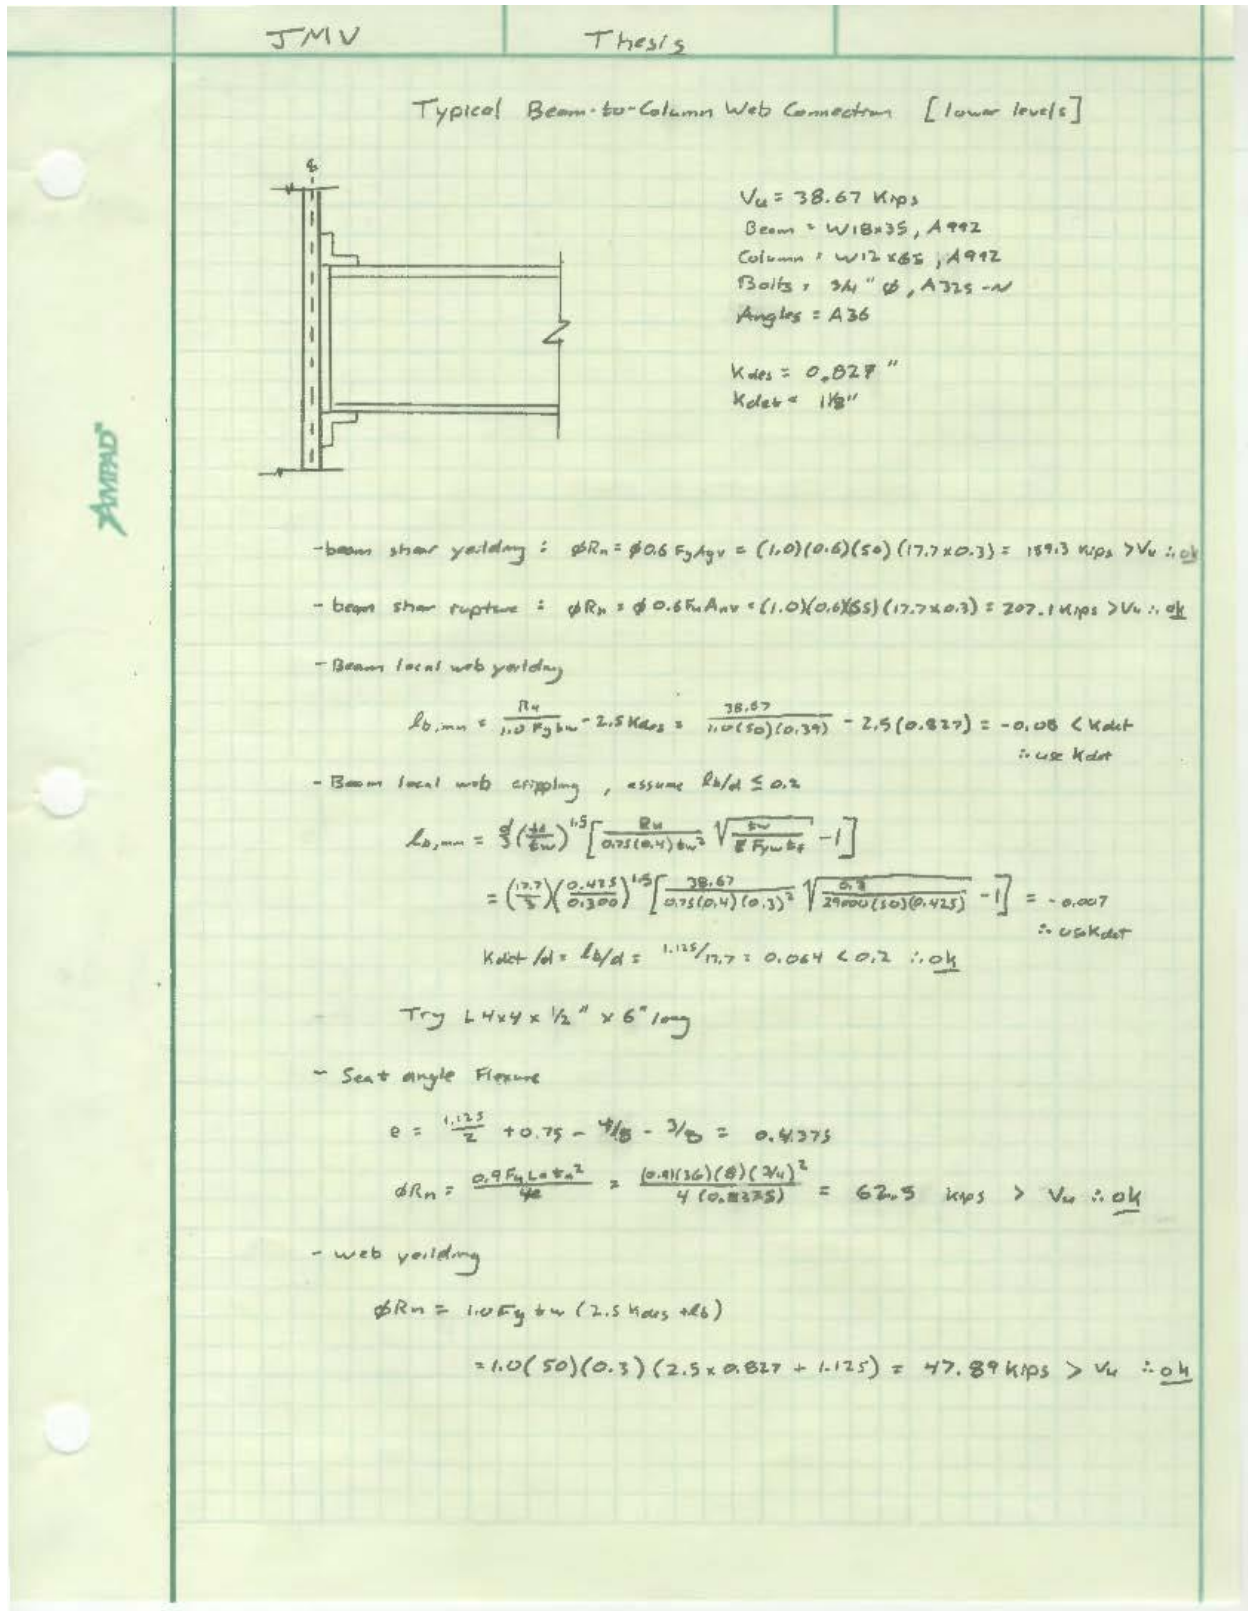 JMV Thesis
Typical Beam-to-Column Web Connection [lower levels]
Vu = 38.67 Kips
Beam = W18x35, A992
Column = W12x65, A992
Bolts = 3/4" ø, A325-N
Angles = A36
Kdes = 0.827"
Kdet = 1 1/8"
AMPAD
-beam shear yeilding : øRn = ø0.6 FyAgv = (1.0)(0.6)(50)(17.7x0.3) = 159.3 Kips > Vu ∴ ok
-beam shear rupture : øRn = ø 0.6FuAnv = (1.0)(0.6)(65)(17.7x0.3) = 207.1 Kips > Vu ∴ ok
-Beam local web yeilding
lb,min = Ru/1.0 Fy tw - 2.5 Kdes = 38.67/1.0(50)(0.39) - 2.5(0.827) = -0.08 < Kdet
∴ use Kdet
-Beam local web crippling, assume lb/d ≤ 0.2
lb,min = d/3 (tf/tw)^1.5 [Ru/0.75(0.4)tw² √(tw/E Fyw tf) - 1]
= (17.7/3)(0.425/0.300)^1.5 [38.67/0.75(0.4)(0.3)² √(0.3/29000(50)(0.425)) - 1] = -0.007
∴ use Kdet
Kdet/d = lb/d = 1.125/17.7 = 0.064 < 0.2 ∴ ok
Try L4x4x1/2" x 6" long
- Seat angle Flexure
e = 1.125/2 + 0.75 - 4/8 - 3/8 = 0.4375
øRn = 0.9 Fy La ta²/4e = (0.9)(36)(8)(3/4)²/4 = 62.5 kips > Vu ∴ ok
- web yeilding
øRn = 1.0 Fy tw (2.5 Kdes + lb)
= 1.0(50)(0.3)(2.5x0.827 + 1.125) = 47.89 Kips > Vu ∴ ok